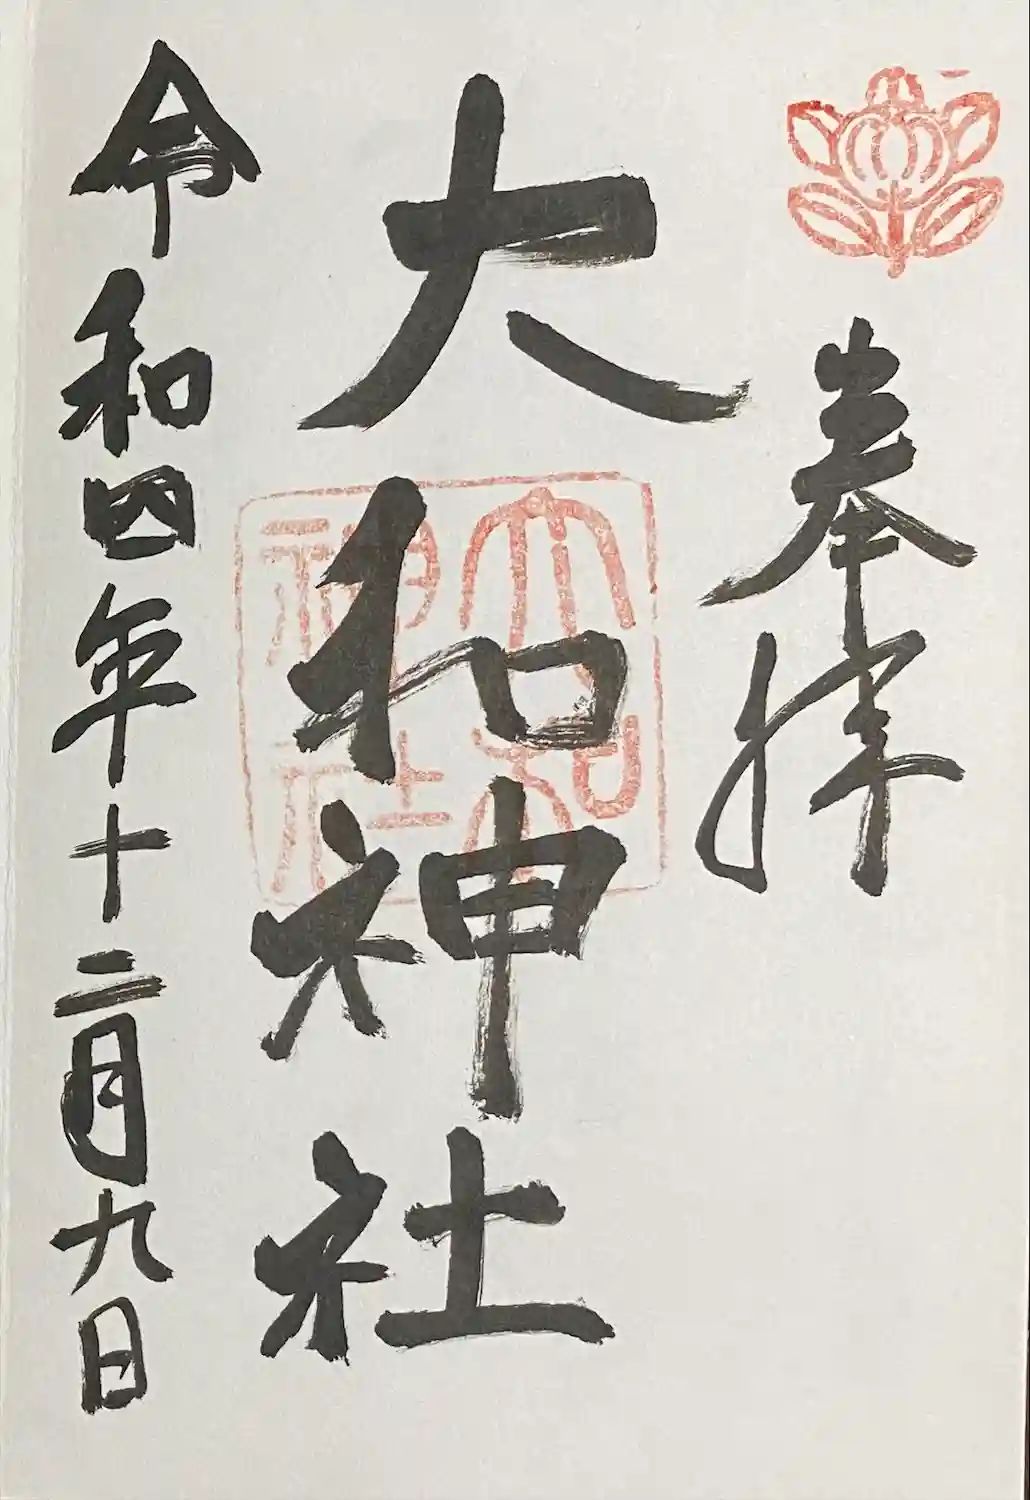 奉拝
大和神社
大和神社
令和四年十二月九日